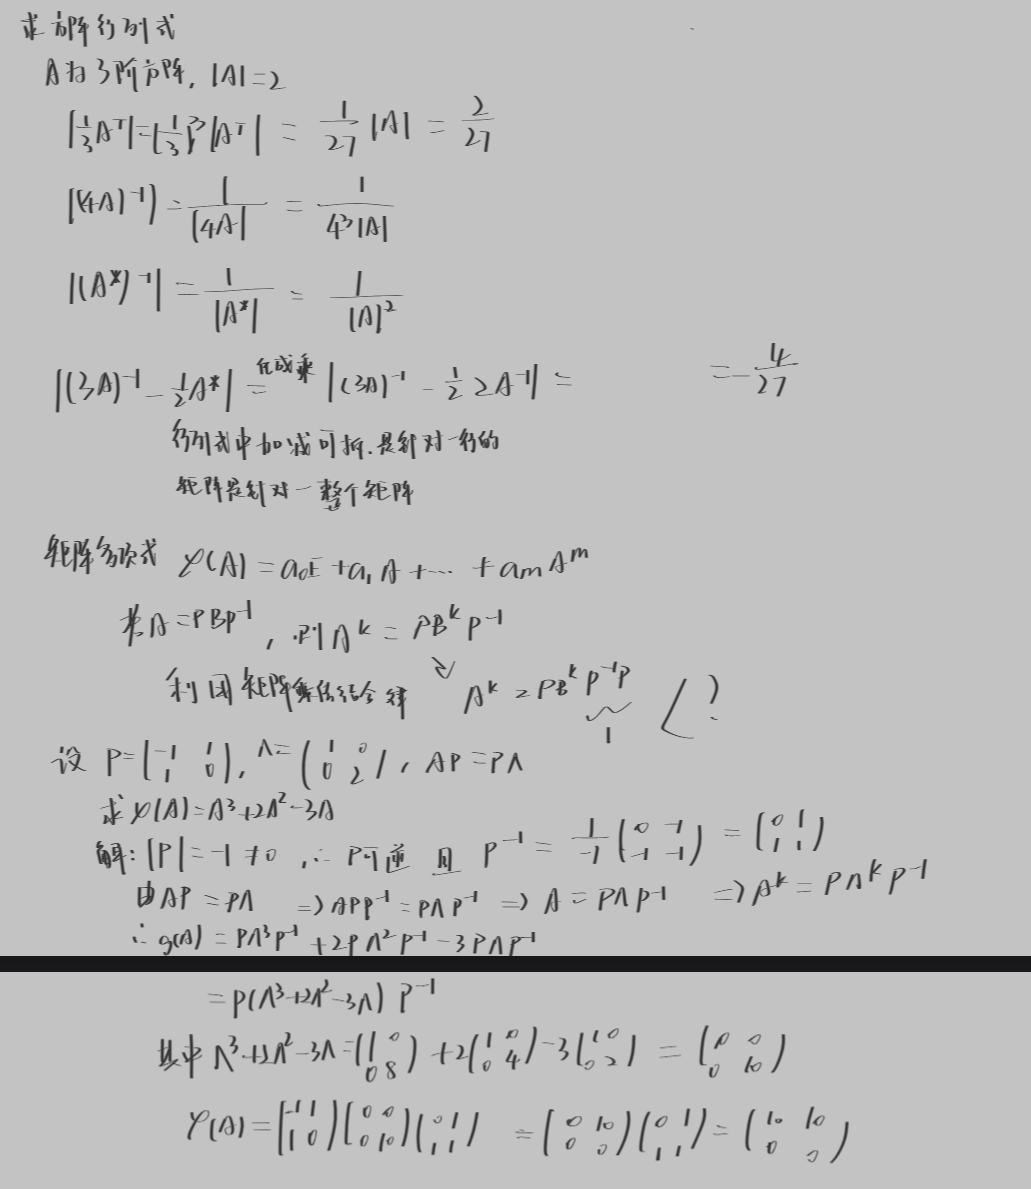 求方阵行列式
A为3阶方阵, |A|=2
|1/3 A^T|=(1/3)^3|A^T| = 1/27 |A| = 2/27
|(4A)^-1| = 1/|4A| = 1/(4^3|A|)
|(A*)^-1| = 1/|A*| = 1/|A|^2
|(3A)^-1 - 1/2 A*| =化成乘= |(3A)^-1 - 1/2 2A^-1| = = -4/27
行列式中加减可拆.是针对一行的
矩阵是针对一整个矩阵
矩阵多项式 φ(A) = a₀E + a₁A + ... + aₘA^m
若A=PBP^-1, 则A^k = PB^kP^-1
利用矩阵乘法结合律 A^k = PB^kP^-1P ( ?
1
设 P=(-1 1; 1 0), Λ=(1 0; 0 2), AP=PΛ
求φ(A)=A^3+2A^2-3A
解: |P|=-1≠0, ∴P可逆 且 P^-1 = 1/-1 (0 -1; -1 -1) = (0 1; 1 1)
由AP=PΛ => APP^-1=PΛP^-1 => A=PΛP^-1 => A^k=PΛ^kP^-1
∴ φ(A) = PΛ^3P^-1 + 2PΛ^2P^-1 - 3PΛP^-1
= P(Λ^3+2Λ^2-3Λ)P^-1
其中Λ^3+2Λ^2-3Λ=(1 0; 0 8) + 2(1 0; 0 4) - 3(1 0; 0 2) = (0 0; 0 10)
φ(A) = (-1 1; 1 0)(0 0; 0 10)(0 1; 1 1) = (0 10; 0 0)(0 1; 1 1) = (10 10; 0 0)